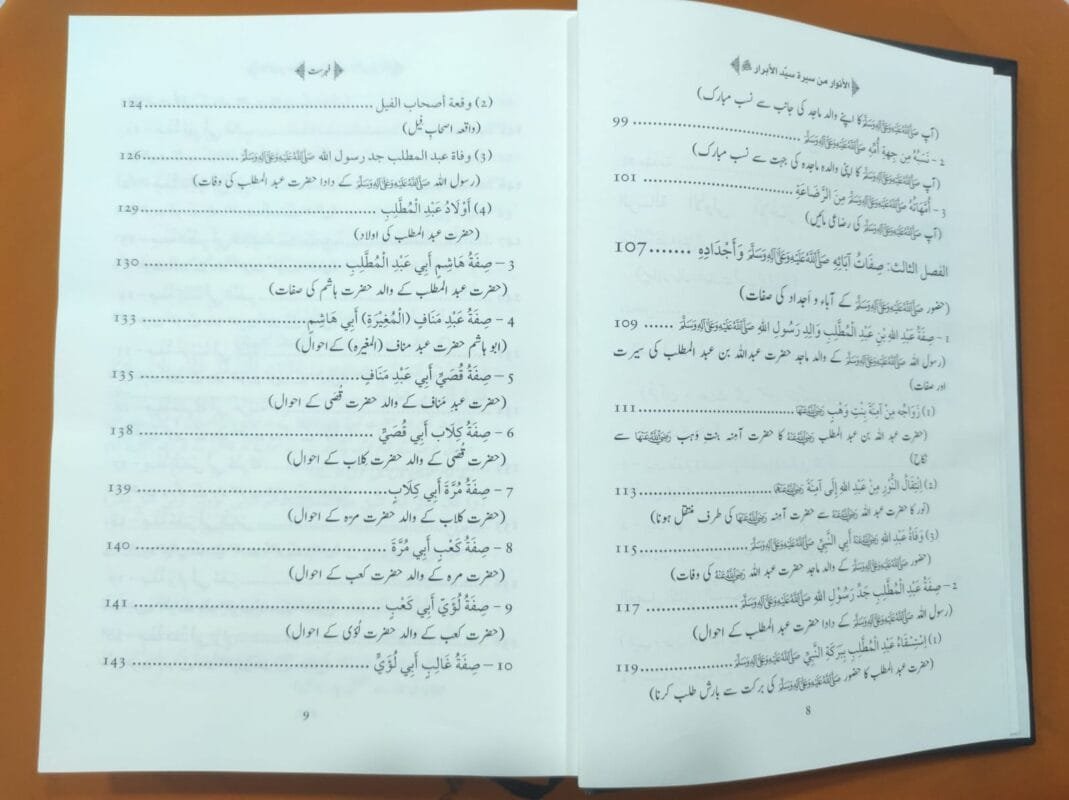 الأنوار من سيرة سيّد الأبرار ﷺ
(آپ صَلَّى اللهُ عَلَيْهِ وَعَلَى آلِهِ وَسَلَّمَ کا اپنے والد ماجد کی جانب سے نسب مبارک)
2 - نَسَبُهُ مِن جِهةِ أُمِّهِ صَلَّى اللهُ عَلَيْهِ وَعَلَى آلِهِ وَسَلَّمَ ........ 99
(آپ صَلَّى اللهُ عَلَيْهِ وَعَلَى آلِهِ وَسَلَّمَ کا اپنی والدہ ماجدہ کی جہت سے نسب مبارک)
3 - أُمَّهَاتُهُ صَلَّى اللهُ عَلَيْهِ وَعَلَى آلِهِ وَسَلَّمَ مِنَ الرَّضَاعَةِ ........ 101
(آپ صَلَّى اللهُ عَلَيْهِ وَعَلَى آلِهِ وَسَلَّمَ کی رضاعی مائیں)
الفصل الثالث: صِفَاتُ آبَائِهِ صَلَّى اللهُ عَلَيْهِ وَعَلَى آلِهِ وَسَلَّمَ وَأَجْدَادِهِ ....... 107
(حضور صَلَّى اللهُ عَلَيْهِ وَعَلَى آلِهِ وَسَلَّمَ کے آباء و اَجداد کی صفات)
1 - صِفَةُ عَبدِ اللهِ بْنِ عَبدِ الْمُطَّلِبِ وَالِدِ رَسُولِ اللهِ صَلَّى اللهُ عَلَيْهِ وَعَلَى آلِهِ وَسَلَّمَ ...... 109
(رسول اللہ صَلَّى اللهُ عَلَيْهِ وَعَلَى آلِهِ وَسَلَّمَ کے والد ماجد حضرت عبداللہ بن عبد المطلب کی سیرت
اور صفات)
(1) زَوَاجُه مِنْ آمِنَةَ بِنْتِ وَهْبٍ رَضِيَ اللهُ عَنْهَا ........ 111
(حضرت عبد اللہ بن عبد المطلب رَضِيَ اللهُ عَنْهُ کا حضرت آمنہ بنتِ وَہب رَضِيَ اللهُ عَنْهَا سے
نکاح)
(2) اِنْتِقَالُ النُّورِ مِنْ عَبْدِ اللهِ إِلَى آمِنَةَ رَضِيَ اللهُ عَنْهَا ........ 113
(نور کا حضرت عبد اللہ رَضِيَ اللهُ عَنْهُ سے حضرت آمنہ رَضِيَ اللهُ عَنْهَا کی طرف منتقل ہونا)
(3) وَفَاةُ عَبْدِ اللهِ رَضِيَ اللهُ عَنْهُ أَبِي النَّبِيِّ صَلَّى اللهُ عَلَيْهِ وَعَلَى آلِهِ وَسَلَّمَ ........ 115
(حضور صَلَّى اللهُ عَلَيْهِ وَعَلَى آلِهِ وَسَلَّمَ کے والد ماجد حضرت عبد اللہ رَضِيَ اللهُ عَنْهُ کی وفات)
2 - صِفَةُ عَبْدِ الْمُطَّلِبِ جَدِّ رَسُولِ اللهِ صَلَّى اللهُ عَلَيْهِ وَعَلَى آلِهِ وَسَلَّمَ ........ 117
(رسول اللہ صَلَّى اللهُ عَلَيْهِ وَعَلَى آلِهِ وَسَلَّمَ کے دادا حضرت عبد المطلب کے احوال)
(1) اِسْتِسْقَاءُ عَبْدِ الْمُطَّلِبِ بِبَرَكَةِ النَّبِيِّ صَلَّى اللهُ عَلَيْهِ وَعَلَى آلِهِ وَسَلَّمَ ........ 119
(حضرت عبد المطلب کا حضور صَلَّى اللهُ عَلَيْهِ وَعَلَى آلِهِ وَسَلَّمَ کی برکت سے بارش طلب کرنا)
8
فہرست
(2) وقعة أصحاب الفيل ........ 124
(واقعہ اصحابِ فیل)
(3) وفاة عبد المطلب جد رسول الله صَلَّى اللهُ عَلَيْهِ وَعَلَى آلِهِ وَسَلَّمَ ........ 126
(رسول اللہ صَلَّى اللهُ عَلَيْهِ وَعَلَى آلِهِ وَسَلَّمَ کے دادا حضرت عبد المطلب کی وفات)
(4) أَوْلَادُ عَبْدِ الْمُطَّلِبِ ........ 129
(حضرت عبد المطلب کی اولاد)
3 - صِفَةُ هَاشِمٍ أَبِي عَبْدِ الْمُطَّلِبِ ........ 130
(حضرت عبد المطلب کے والد حضرت ہاشم کی صفات)
4 - صِفَةُ عَبْدِ مَنَافٍ (الْمُغِيْرَةِ) أَبِي هَاشِمٍ ........ 133
(ابو ہاشم حضرت عبد مناف (المغیرہ) کے احوال)
5 - صِفَةُ قُصَيٍّ أَبِي عَبْدِ مَنَافٍ ........ 135
(حضرت عبدِ مَناف کے والد حضرت قُصَی کے احوال)
6 - صِفَةُ كِلَابٍ أَبِي قُصَيٍّ ........ 138
(حضرت قُصَی کے والد حضرت کِلاب کے احوال)
7 - صِفَةُ مُرَّةَ أَبِي كِلَابٍ ........ 139
(حضرت کلاب کے والد حضرت مرّہ کے احوال)
8 - صِفَةُ كَعْبٍ أَبِي مُرَّةَ ........ 140
(حضرت مرہ کے والد حضرت کعب کے احوال)
9 - صِفَةُ لُؤَيٍّ أَبِي كَعْبٍ ........ 141
(حضرت کعب کے والد حضرت لُؤی کے احوال)
10 - صِفَةُ غَالِبٍ أَبِي لُؤَيٍّ ........ 143
9